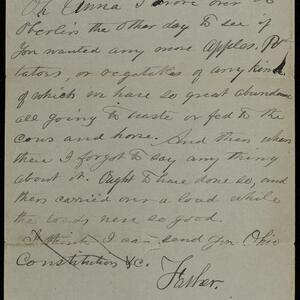 Oh Anna I drove over to
Oberlin the other day to see if
you wanted any more Apples, Po
tators, or vegetables of any kind
of which we have so great abundance
all going to waste or fed to the
cows and horse. And then when
there I forgot to say any thing
about it. Ought to have done so, and
then carried over a load while
the roads were so good.
I think I can send you Ohio
Constitution &C.
Father.